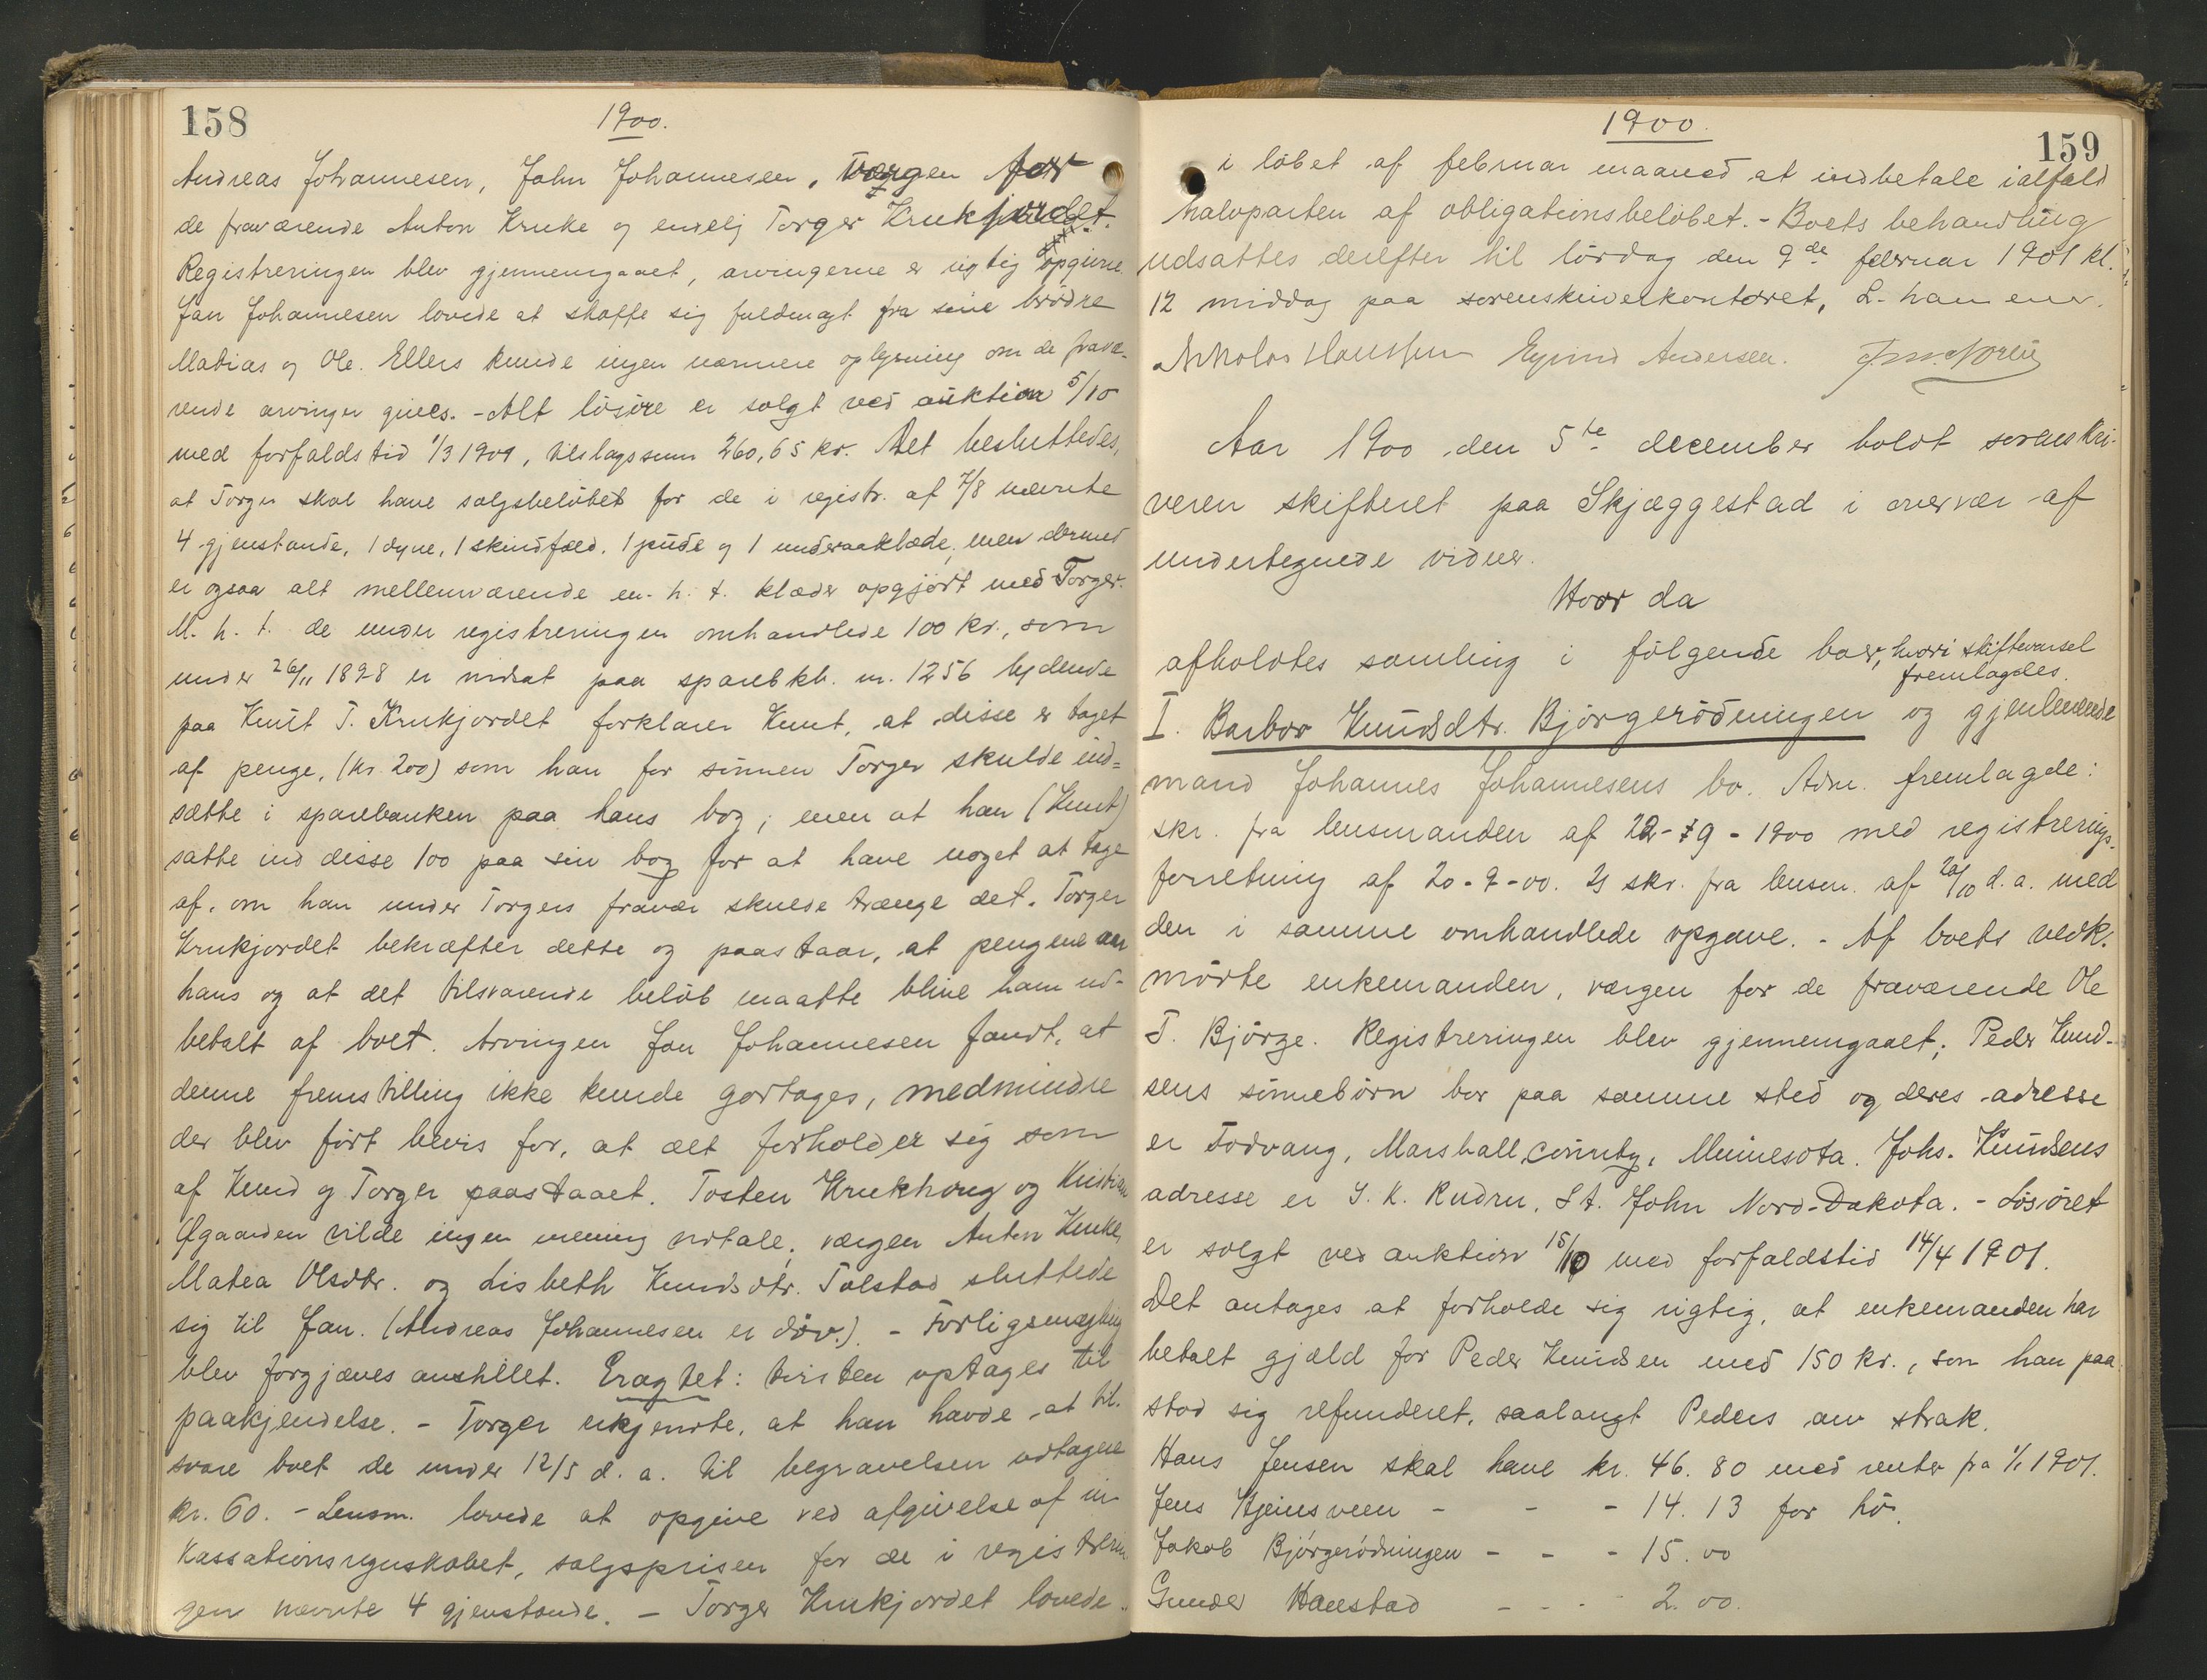 158
1900.
Andreas Johannesen, John Johannesen, værgen for
de fraværende Anton Kruke og endelig Torger Krukjordet.
Registreringen blev gjennemgaaet, arvingerne er rigtig opgivne.
Jan Johannesen lovede at skaffe sig fuldmagt fra sine brödre
Matias og Ole. Ellers kunde ingen nærmere oplysning om de fravæ-
rende arvinger gives. - Alt lösöre er solgt ved auktion 5/10
med forfaldstid 1/3 1901, tilslagssum 260,65 kr. Det besluttedes,
at Torger skal have salgsbelöbet for de i registr. af 7/8 nævnte
4 gjenstande, 1 dyne, 1 skindfæld, 1 pude og 1 underaaklæde, men dermed
er ogsaa alt mellemværende m. h. t. klæder opgjört med Torger.
M. h. t. de under registreringen omhandlede 100 kr., som
under 26/11 1898 er indsat paa sparebkb. nr. 1256 lydende
paa Knut T. Krukjordet forklarer Knut, at disse er taget
af penge, (kr. 200) som han for sönnen Torger skulde ind-
sætte i sparebanken paa hans bog; men at han (Knut)
satte ind disse 100 paa sin bog for at have noget at tage
af, om han under Torgers fravær skulde trænge det. Torger
Krukjordet bekræfter dette og paastaar, at pengene er
hans og at det tilsvarende belöb maatte blive ham ud-
betalt af boet. Arvingen Jan Johannesen fandt, at
denne fremstilling ikke kunde godtages, medmindre
der blev fört bevis for, at det forholder sig som
af Knud og Torger paastaaet. Tosten Krukhaug og Kristian
Øgaarden vilde ingen mening udtale; værgen Anton Kruke,
Matea Olsdtr. og Lisbeth Knudsdtr. Tolstad sluttede
sig til Jan. (Andreas Johannesen er döv.) - Forligsmægling
blev forgjæves anstillet. Eragtet: tvisten optages til
paakjendelse. - Torger erkjendte, at han havde at til-
svare boet de under 12/5 d. a. til begravelsen udtagne
kr. 60. - Lensm. lovede at opgive ved afgivelse af in-
kassationsregnskabet, salgsprisen for de i registrerin-
gen nævnte 4 gjenstande. - Torger Krukjordet lovede
1900.
159
i löbet af februar maaned at indbetale ialfald
halvparten af obligationsbelöbet. - Boets behandling
udsattes derefter til lördag den 9de februar 1901 kl.
12 middag paa sorenskriverkontoret,
Nikolas Hanssen Eyvind Andersen.
Aar 1900 den 5te december holdt sorenskri-
veren skifteret paa Skjæggestad i overvær af
undertegnede vidner.
Hvor da
afholdtes samling i fölgende boer, hvori skiftevarsel
fremlagdes.
I. Barbro Knudsdtr. Bjørgerödningen og gjenlevende
mand Johannes Johannesens bo. Adm. fremlagde:
skr. fra lensmanden af 22-9-1900 med registrerings-
forretning af 20-9-00. 2) skr. fra lensm. af 20/10 d. a. med
den i samme omhandlede opgave. - Af boets vedk.
mödte enkemanden, værgen for de fraværende Ole
T. Bjørge. Registreringen blev gjennemgaaet; Peder Knud-
sens sönnebörn bor paa samme sted og deres adresse
er Fodvang, Marshall county, Minnesota. Johs. Knudsens
adresse er J. K. Rudru, St. John Nord-Dakota. - Lösöret
er solgt ved auktion 15/10 med forfaldstid 14/4 1901.
Det antages at forholde sig rigtig, at enkemanden har
betalt gjæld for Peder Knudsen med 150 kr., som han paa-
stod sig refunderet, saalangt Peders arv strak.
Hans Jensen skal have kr. 46.80 med renter fra 1/1 1901.
Jens Hjeinsveen - - - 14.13 for hö.
Jakob Bjørgerödningen - - - 15.00
Gunder Hanestad - - - 2.00.